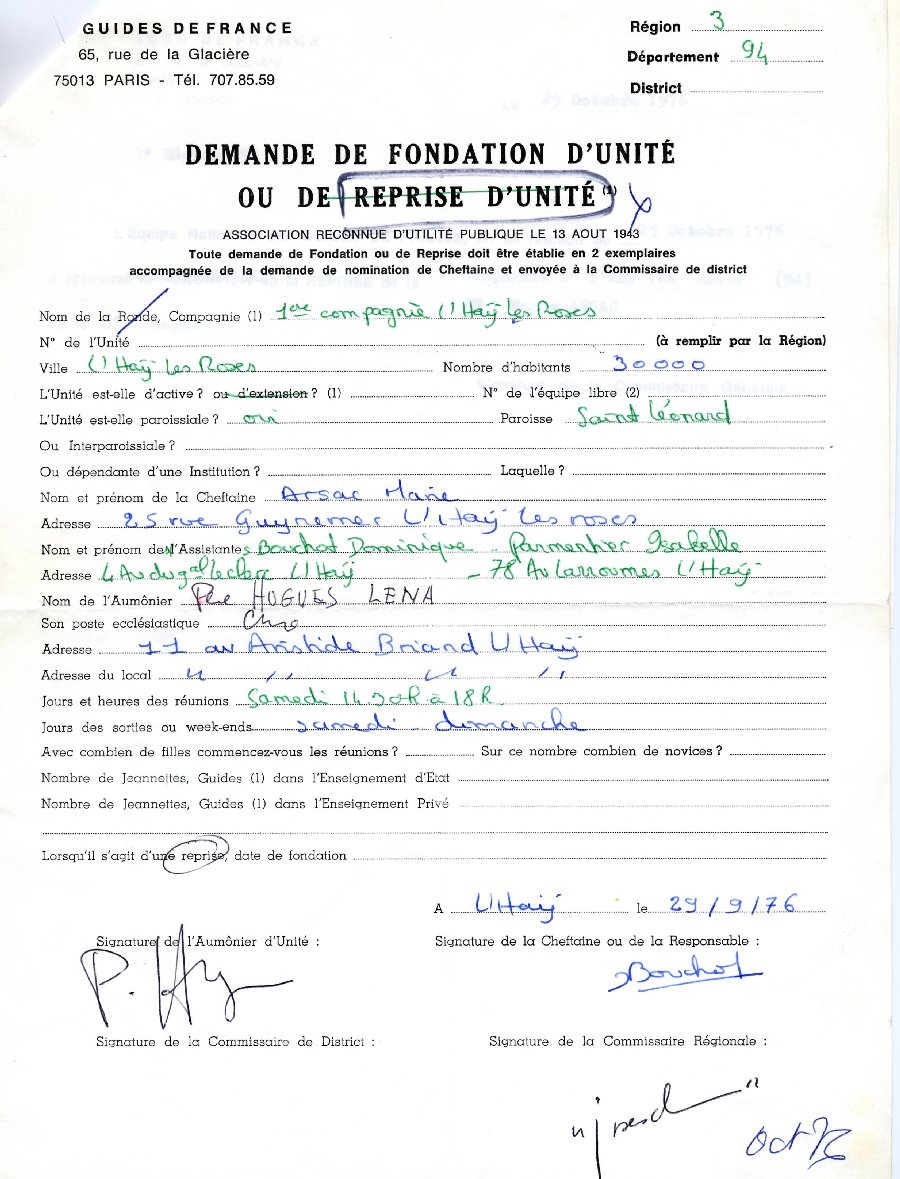 GUIDES DE FRANCE
65, rue de la Glacière
75013 PARIS - Tél. 707.85.59
Région 3
Département 94
District
DEMANDE DE FONDATION D'UNITÉ
OU DE REPRISE D'UNITÉ (1)
ASSOCIATION RECONNUE D'UTILITÉ PUBLIQUE LE 13 AOUT 1943
Toute demande de Fondation ou de Reprise doit être établie en 2 exemplaires
accompagnée de la demande de nomination de Cheftaine et envoyée à la Commissaire de district
Nom de la Ronde, Compagnie (1) 1ere compagnie L'Haÿ Les Roses
N° de l'Unité (à remplir par la Région)
Ville L'Haÿ Les Roses Nombre d'habitants 30000
L'Unité est-elle d'active ? ou d'extension ? (1) N° de l'équipe libre (2)
L'Unité est-elle paroissiale ? oui Paroisse Saint Léonard
Ou Interparoissiale ?
Ou dépendante d'une Institution ? Laquelle ?
Nom et prénom de la Cheftaine Arsac Marie
Adresse 25 rue Guynemer L'Haÿ les roses
Nom et prénom des Assistantes Bouchot Dominique - Parmentier Isabelle
Adresse 4 Av du gal Leclerc L'Haÿ - 78 Av Larroumes L'Haÿ
Nom de l'Aumônier Père HUGUES LENA
Son poste ecclésiastique
Adresse 11 av Aristide Briand L'Haÿ
Adresse du local " " " "
Jours et heures des réunions Samedi 14 30h à 18h
Jours des sorties ou week-ends samedi - dimanche
Avec combien de filles commencez-vous les réunions ? Sur ce nombre combien de novices ?
Nombre de Jeannettes, Guides (1) dans l'Enseignement d'Etat
Nombre de Jeannettes, Guides (1) dans l'Enseignement Privé
Lorsqu'il s'agit d'une reprise, date de fondation
A L'Haÿ le 29/9/76
Signature de l'Aumônier d'Unité :
Signature de la Cheftaine ou de la Responsable :
Bouchot
Signature de la Commissaire de District :
Signature de la Commissaire Régionale :
Oct 76